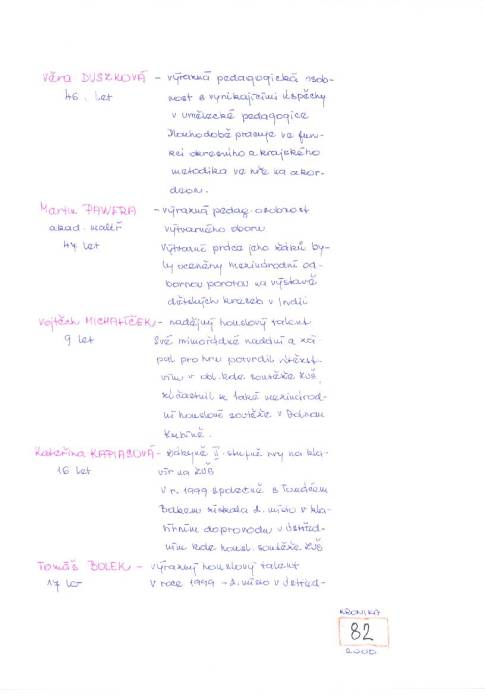 Věra DUSZKOVÁ - výrazná pedagogická osob-
46. let nost s vynikajícími úspěchy
v umělecké pedagogice
Dlouhodobě pracuje ve fun-
kci okresního a krajského
metodika ve hře na akor-
deon.
Martin PAWERA - výrazná pedag. osobnost
akad. malíř výtvarného oboru
47 let Výtvarné práce jeho žáků by-
ly oceněny mezinárodní od-
bornou porotou na výstavě
dětských kreseb v Indii
Vojtěch MICHALÍČEK - nadějný houslový talent
9 let Své mimořádné nadání a zá-
pal pro hru potvrdil vítězst-
vím v obl. kole soutěže ZUŠ,
zúčastnil se také mezinárod-
ní houslové soutěže v Dolnom
Kubíně.
Kateřina KAPIASOVÁ - žákyně II. stupně hry na kla-
16 let vír na ZUŠ
V r. 1999 společně s Tomášem
Bolkem získala 2. místo v kla-
vírním doprovodu v ústřed-
ním kole housl. soutěže ZUŠ
Tomáš BOLEK - výrazný houslový talent
17 let V roce 1999 - 2. místo v ústřed-
KRONIKA
82
2000